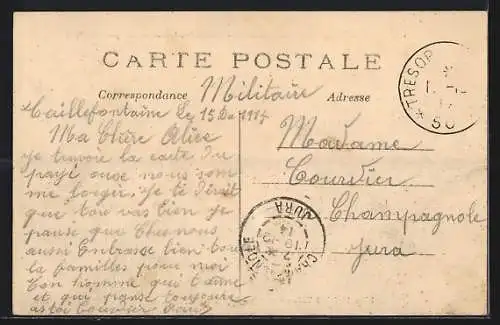 CARTE POSTALE
Correspondance Militaire Adresse
Taillefontaine Le 15 De 1914
Ma Chère Alice
Je tenvoie la carte du
payi ause nous som
me logér. Je te dirait
que tore vas bien je
panse que Chez nous
aussi Enbrasse bien tout
la familles pour moi
Ton homme qui t'aime
et qui panse toujours
a toi Courvier
Madame
Courvier
Champagnole
Jura
* TRESOR
50
JURA